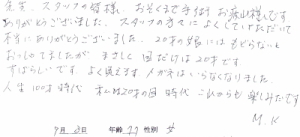 先生、スタッフの皆様、おそくまで手術お疲れ様です
ありがとうございました。スタッフの方々によくしていただいて
本当にありがとうございました。20才の娘にはもどらないと
おっしゃてましたが まさしく 目だけは20才です
すばらしいです よく見えます メガネはいらなくなりました。
人生100才時代 私は20才の目 時代 これからも楽しみたです
M.K
9月 8日 年齢 77 性別 女